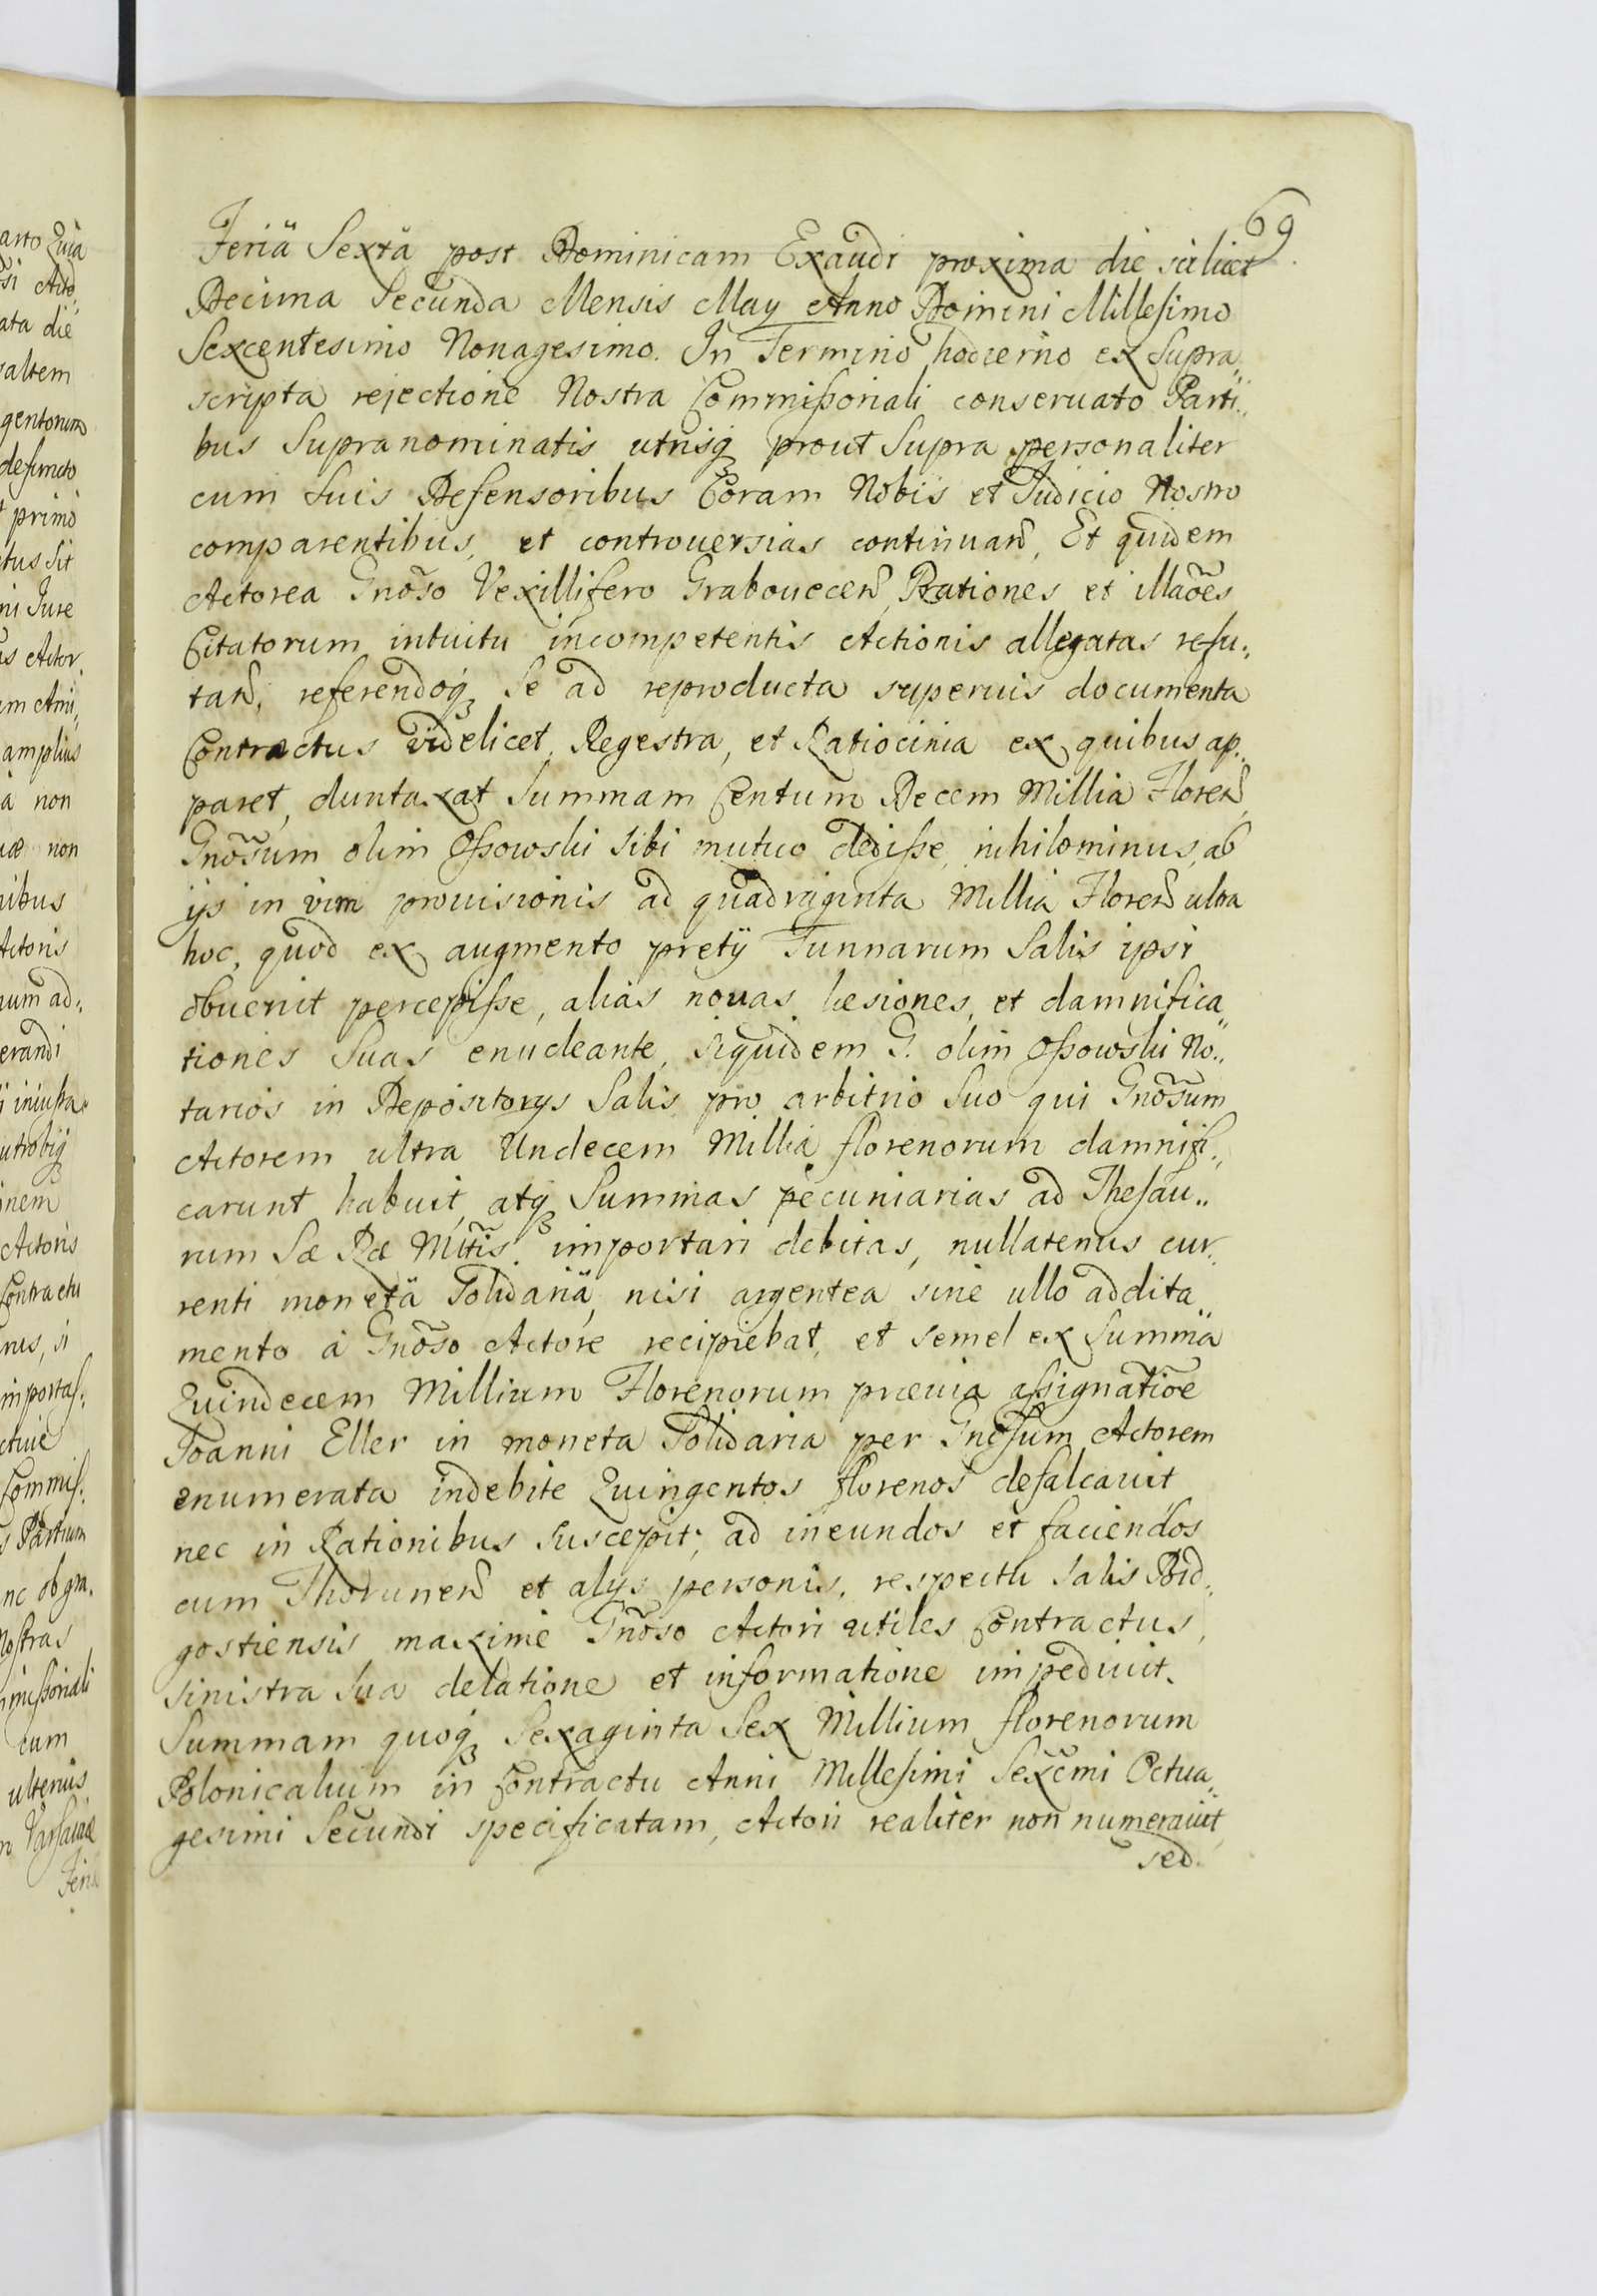 69.
Feriä Sexta post Dominicam Exaudi proxima die scilicet
Decima Secunda Mensis May Anno Domini Millesimo
Sexcentesimo Nonagesimo. In Termino hodierno ex Supra„
scripta rejectione Nostra Commissoriali conseruato Parti„
bus Supranominatis utrisq prout Supra personaliter
cum Suis Defensoribus Coram Nobis et Judicio Nostro
comparentibus, et controuersias continuan̄, Et quidem
Actorea Gnõso Vexillifero Grabouecen̄, Rationes et illaões
Citatorum intuitu incompetentis Actionis allegatas refu„
tan̄, referendoq Se ad reproducta superuis documenta
Contractus videlicet, Regestra, et Ratiocinia ex quibus ap„
paret, duntaxat Summam Centum Decem Millia Floren̄
Gnõsum olim Ossowski sibi mutuo dedisse, nihilominus, ab
ijs in vim prouisionis ad quadraginta Millia Floren̄ ultra
hoc, quod ex augmento pretij Tunnarum Salis ipsi
obuenit percepisse, alias nouas læsiones, et damnifica„
tiones Suas enucleante, siquidem G. olim Ossowski No„
tarios in Depositorys Salis pro arbitrio Suo qui Gnõsum
Actorem ultra Undecem Millia florenorum damnifi„
carunt habuit, atq Summas pecuniarias ad Thesau„
rum Sæ Ræ Mttis importari debitas, nullatenus cur„
renti monetä Solidariä, nisi argentea sine ullo addita„
mento à Gnõso Actore recipiebat, et semel ex Summä
Quindecem Millium Florenorum præuia assignatiõe
Joanni Eller in moneta Solidaria per Gnõsum Actorem
enumerata indebite Quingentos florenos defalcauit
nec in Rationibus suscepit; ad ineundos et faciendos
cum Thorunen̄ et alys personis, respectu Salis Bid„
gostiensis, maxime Gnõso Actori utiles Contractus,
sinistra sua delatione et informatione impediuit.
Summam quoq Sexaginta Sex Millium florenorum
Polonicalium in Contractu Anni Millesimi Sexc̃mi Octua„
gesimi Secundi specificatam, Actori realiter non numerauit
sed.